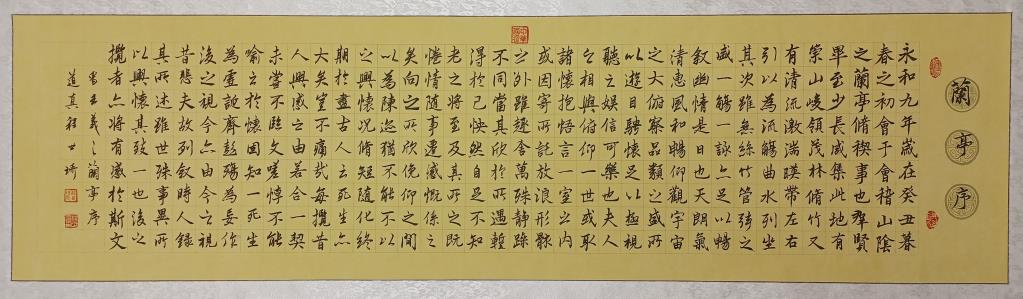 蘭
亭
序
永和九年歲在癸丑暮
春之初會于會稽山陰
之蘭亭脩稧事也羣賢
畢至少長咸集此地有
崇山峻領茂林脩竹又
有清流激湍暎帶左右
引以為流觴曲水列坐
其次雖無絲竹管弦之
盛一觴一詠亦足以暢
敘幽情是日也天朗氣
清惠風和暢仰觀宇宙
之大俯察品類之盛所
以遊目騁懷足以極視
聽之娛信可樂也夫人
之相與俯仰一世或取
諸懷抱悟言一室之內
或因寄所託放浪形骸
之外雖趣舍萬殊靜躁
不同當其欣於所遇蹔
得於己怏然自足不知
老之將至及其所之既
惓情隨事遷感慨係之
矣向之所欣俛仰之間
以為陳迹猶不能不以
之興懷況脩短隨化終
期於盡古人云死生亦
大矣豈不痛哉每攬昔
人興感之由若合一契
未嘗不臨文嗟悼不能
喻之於懷固知一死生
為虛誕齊彭殤為妄作
後之視今亦由今之視
昔悲夫故列敘時人錄
其所述雖世殊事異所
以興懷其致一也後之
攬者亦將有感於斯文
王羲之蘭亭序
道真程世琦